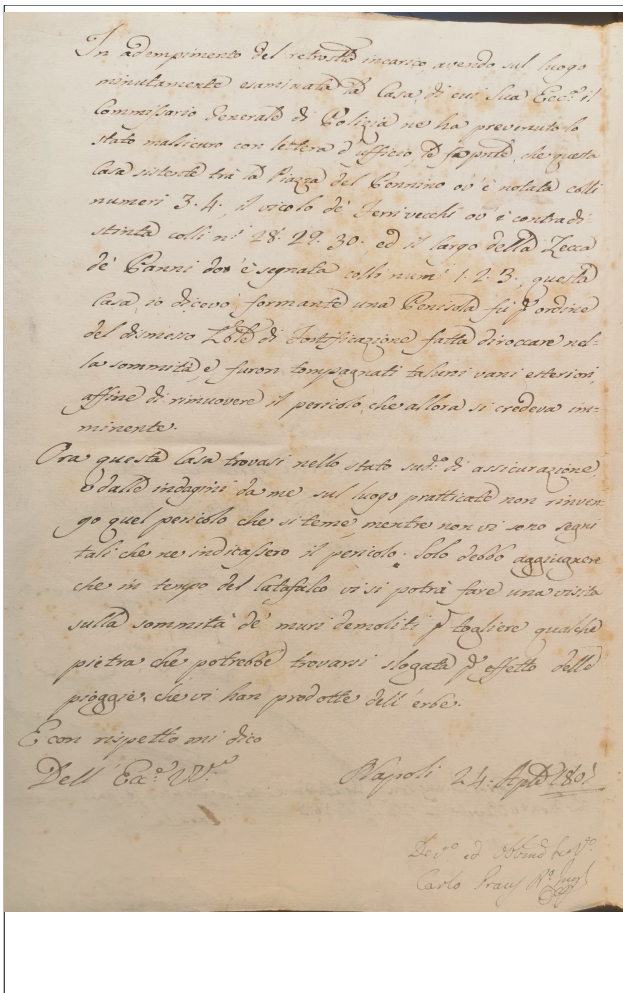 In adempimento del retrosto incarico, avendo sul luogo
minutamente esaminata la Casa, di cui Sua Ecc.a il
Commissario Generale di Polizia ne ha prevenuto lo
stato malsicuro con lettera d'ufficio, le fo pnte, che questa
Casa sistente tra la Piazza del Pennino ov'è notata colli
numeri 3. 4., il vicolo de' Ferrivecchi ov'è contradi
stinta colli n.i 28. 29. 30. ed il largo della Zecca
de' Panni dov'è segnata colli num.i 1. 2. 3., questa
Casa, io dicevo, formante una Penisola fu p ordine
del dismesso di Fortificazione fatta diroccare nel=
la sommità, e furon tompagnati taluni vani esteriori,
affine di rimuovere il pericolo, che allora si credeva im=
minente.
Ora questa Casa trovasi nello stato sud.o di assicurazione,
e dalle indagini da me sul luogo pratticate non rinven=
go quel pericolo che si teme, mentre non vi sono segni
tali che ne indicassero il pericolo. Solo debbo aggiugnere
che in tempo del Catafalco vi si potrà fare una visita
sulla sommità de' muri demoliti p togliere qualche
pietra che potrebbe trovarsi slogata p effetto delle
pioggie, che vi han prodotte dell'erbe.
E con rispetto mi dico
Dell' Ecc.e VV.e Napoli 24. Aple 180
Dev.o ed
Carlo